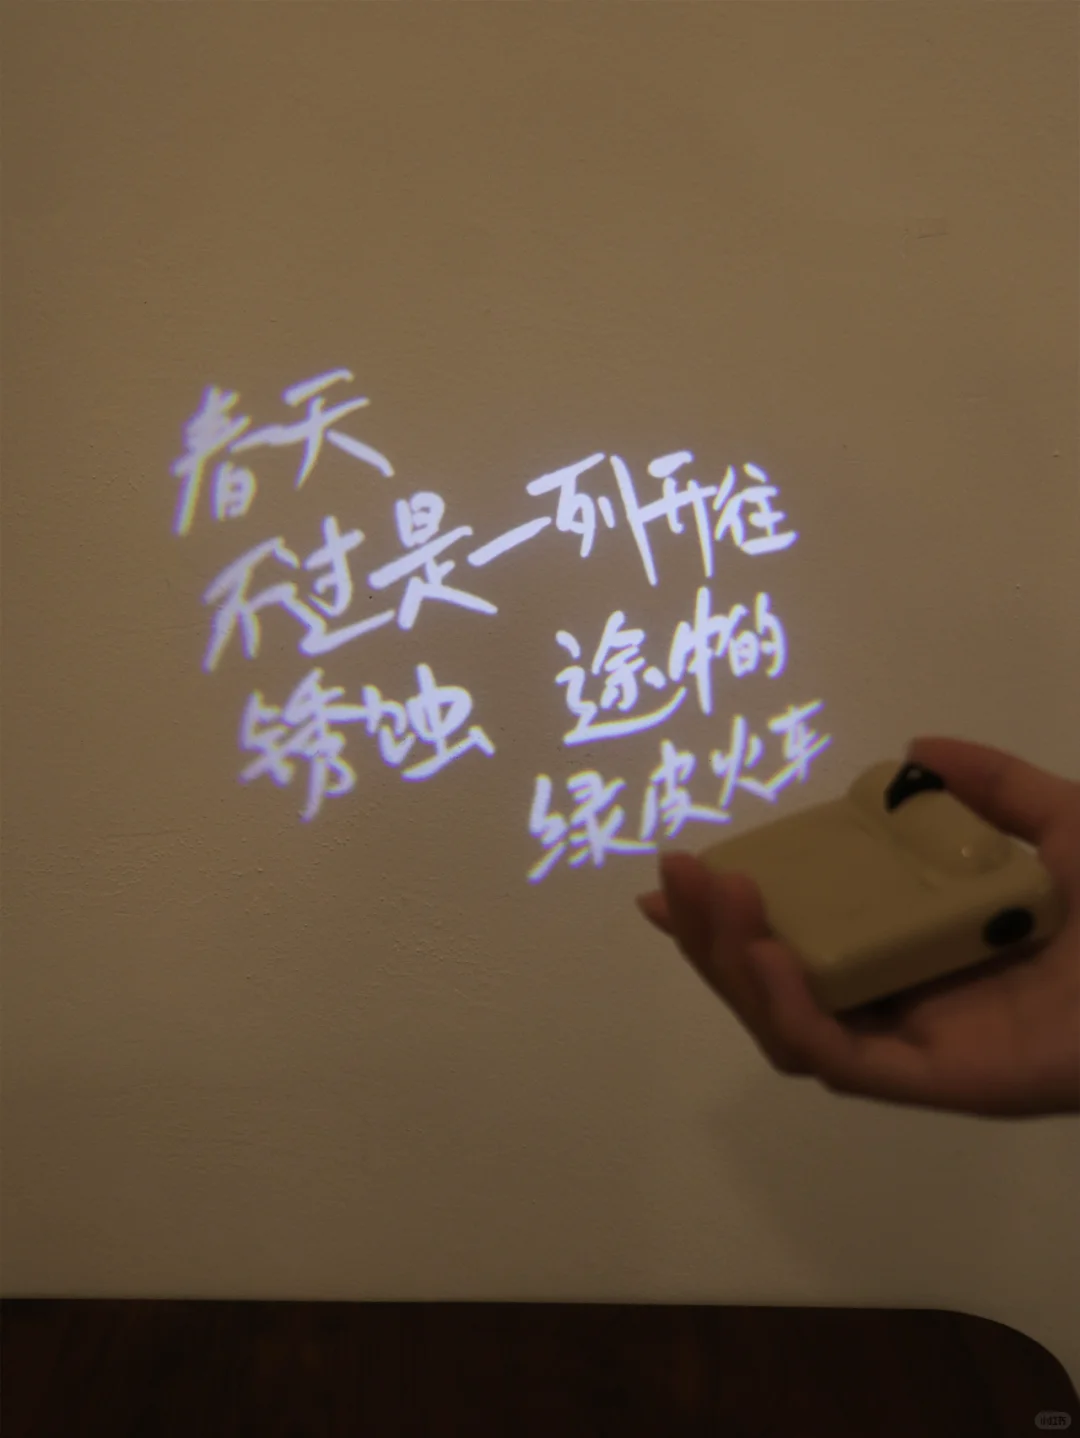 春天
不过是一列开往
锈蚀 途中的
绿皮火车
小红书